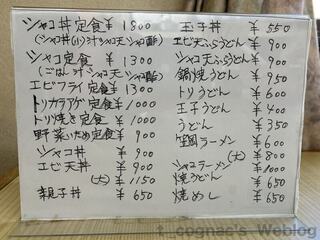 シャコ丼定食 ¥1800
(シャコ丼(小)汁シャコ天シャコ酢)
シャコ定食 ¥1300
(ごはん汁シャコ天シャコ酢)
エビフライ定食 ¥1300
トリカラアゲ定食 ¥1000
トリ焼き定食 ¥1000
野菜いため定食 ¥900
シャコ丼 ¥900
エビ天丼 ¥900
(大) ¥1150
親子丼 ¥650
玉子丼 ¥550
エビ天ぷらうどん ¥900
シャコ天ぷらうどん ¥900
鍋焼うどん ¥950
トリうどん ¥600
玉子うどん ¥400
うどん ¥350
笠岡ラーメン ¥600
(大) ¥800
シャコラーメン ¥1000
焼うどん ¥650
焼めし ¥650
t_cognac's Weblog